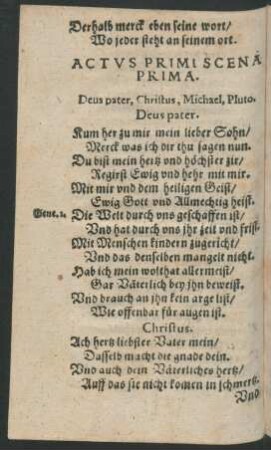 Derhalb merck eben seine wort/
Wo jeder steht an seinem ort.
ACTVS PRIMI SCENA
PRIMA.
Deus pater, Christus, Michael, Pluto.
Deus pater.
Kum her zu mir mein lieber Sohn/
Merck was ich dir thu sagen nun.
Du bist mein hertz vnd höchster zir/
Regirst Ewig vnd hehr mit mir.
Mit mir vnd dem heiligen Geist/
Ewig Gott vnd Allmechtig heist.
Gene. 1. Die Welt durch vns geschaffen ist/
Vnd hat durch vns jhr zeit vnd frist.
Mit Menschen kindern zugericht/
Vnd das denselben mangelt nicht.
Hab ich mein wolthat allermeist/
Gar Väterlich bey jhn beweist.
Vnd brauch an jhn kein arge list/
Wie offenbar für augen ist.
Christus.
Ach hertz liebster Vater mein/
Dasselb macht die gnade dein.
Vnd auch dein Väterliches hertz/
Auff das sie nicht komen in schmertz.
Vnd